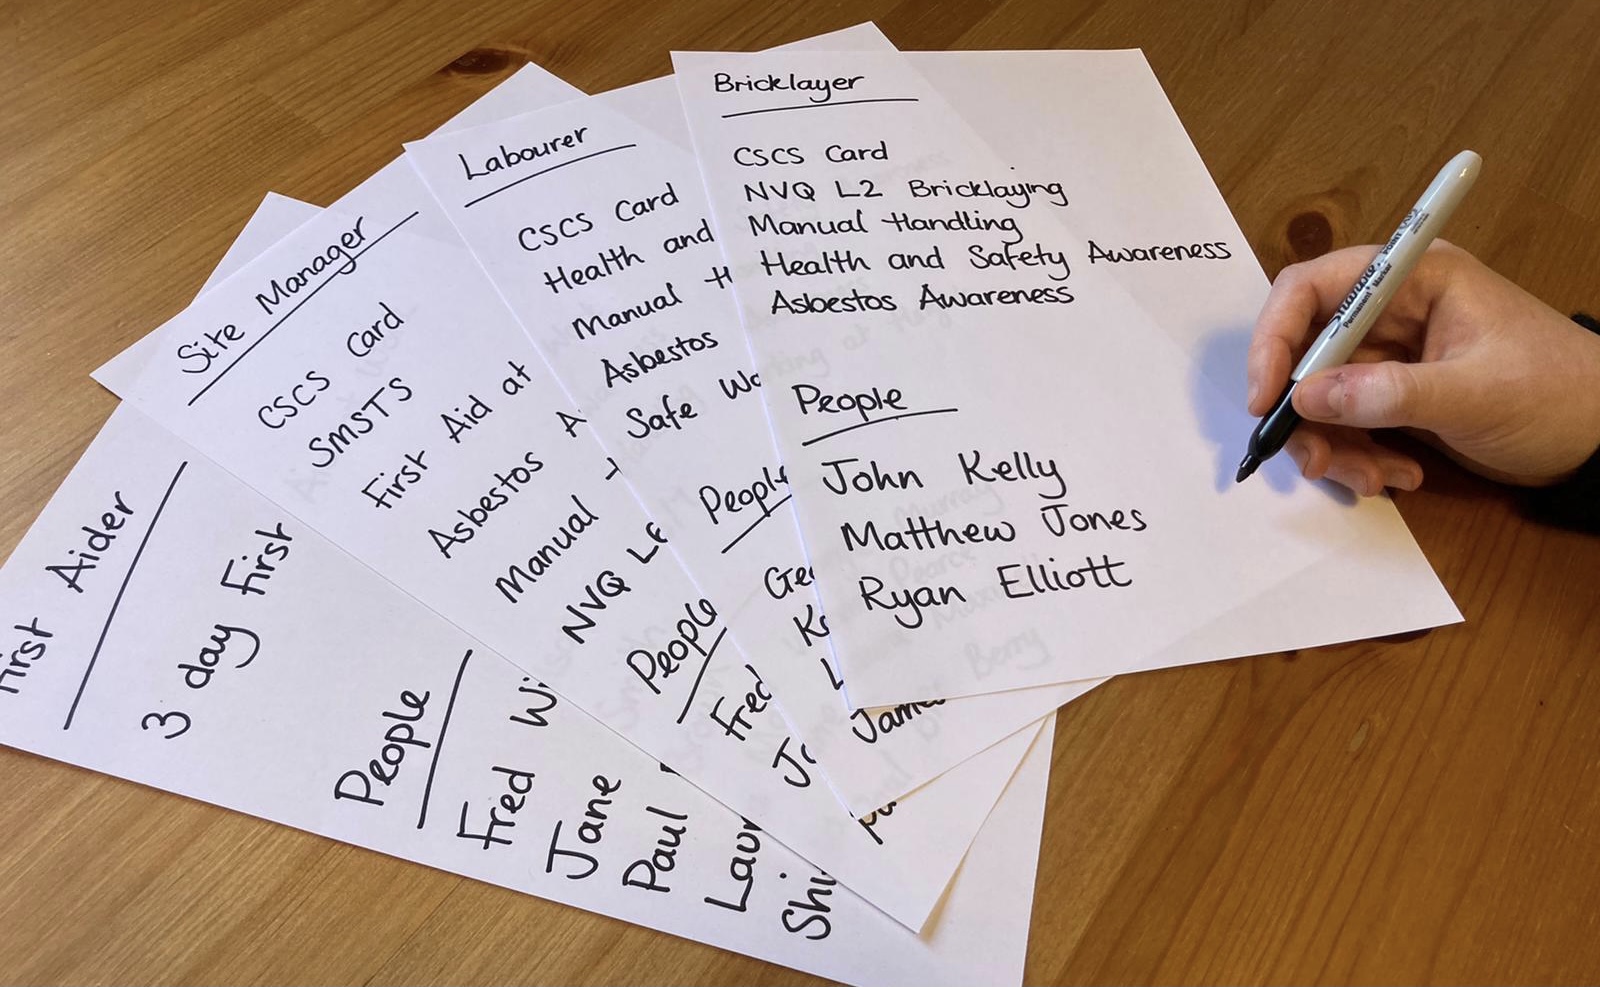 Bricklayer
CSCS Card
NVQ L2 Bricklaying
Manual Handling
Health and Safety Awareness
Asbestos Awareness
People
John Kelly
Matthew Jones
Ryan Elliott
Labourer
CSCS Card
Health and
Manual H
Asbestos
Safe Wo
People
Ge
K
L
James
Site Manager
CSCS Card
SMSTS
First Aid at
Asbestos A
Manual
NVQ L6
People
Fred
Ja
Paul
First Aider
3 day First
People
Fred Wi
Jane
Paul
Laur
Shi
Sharpie
Permanent Marker